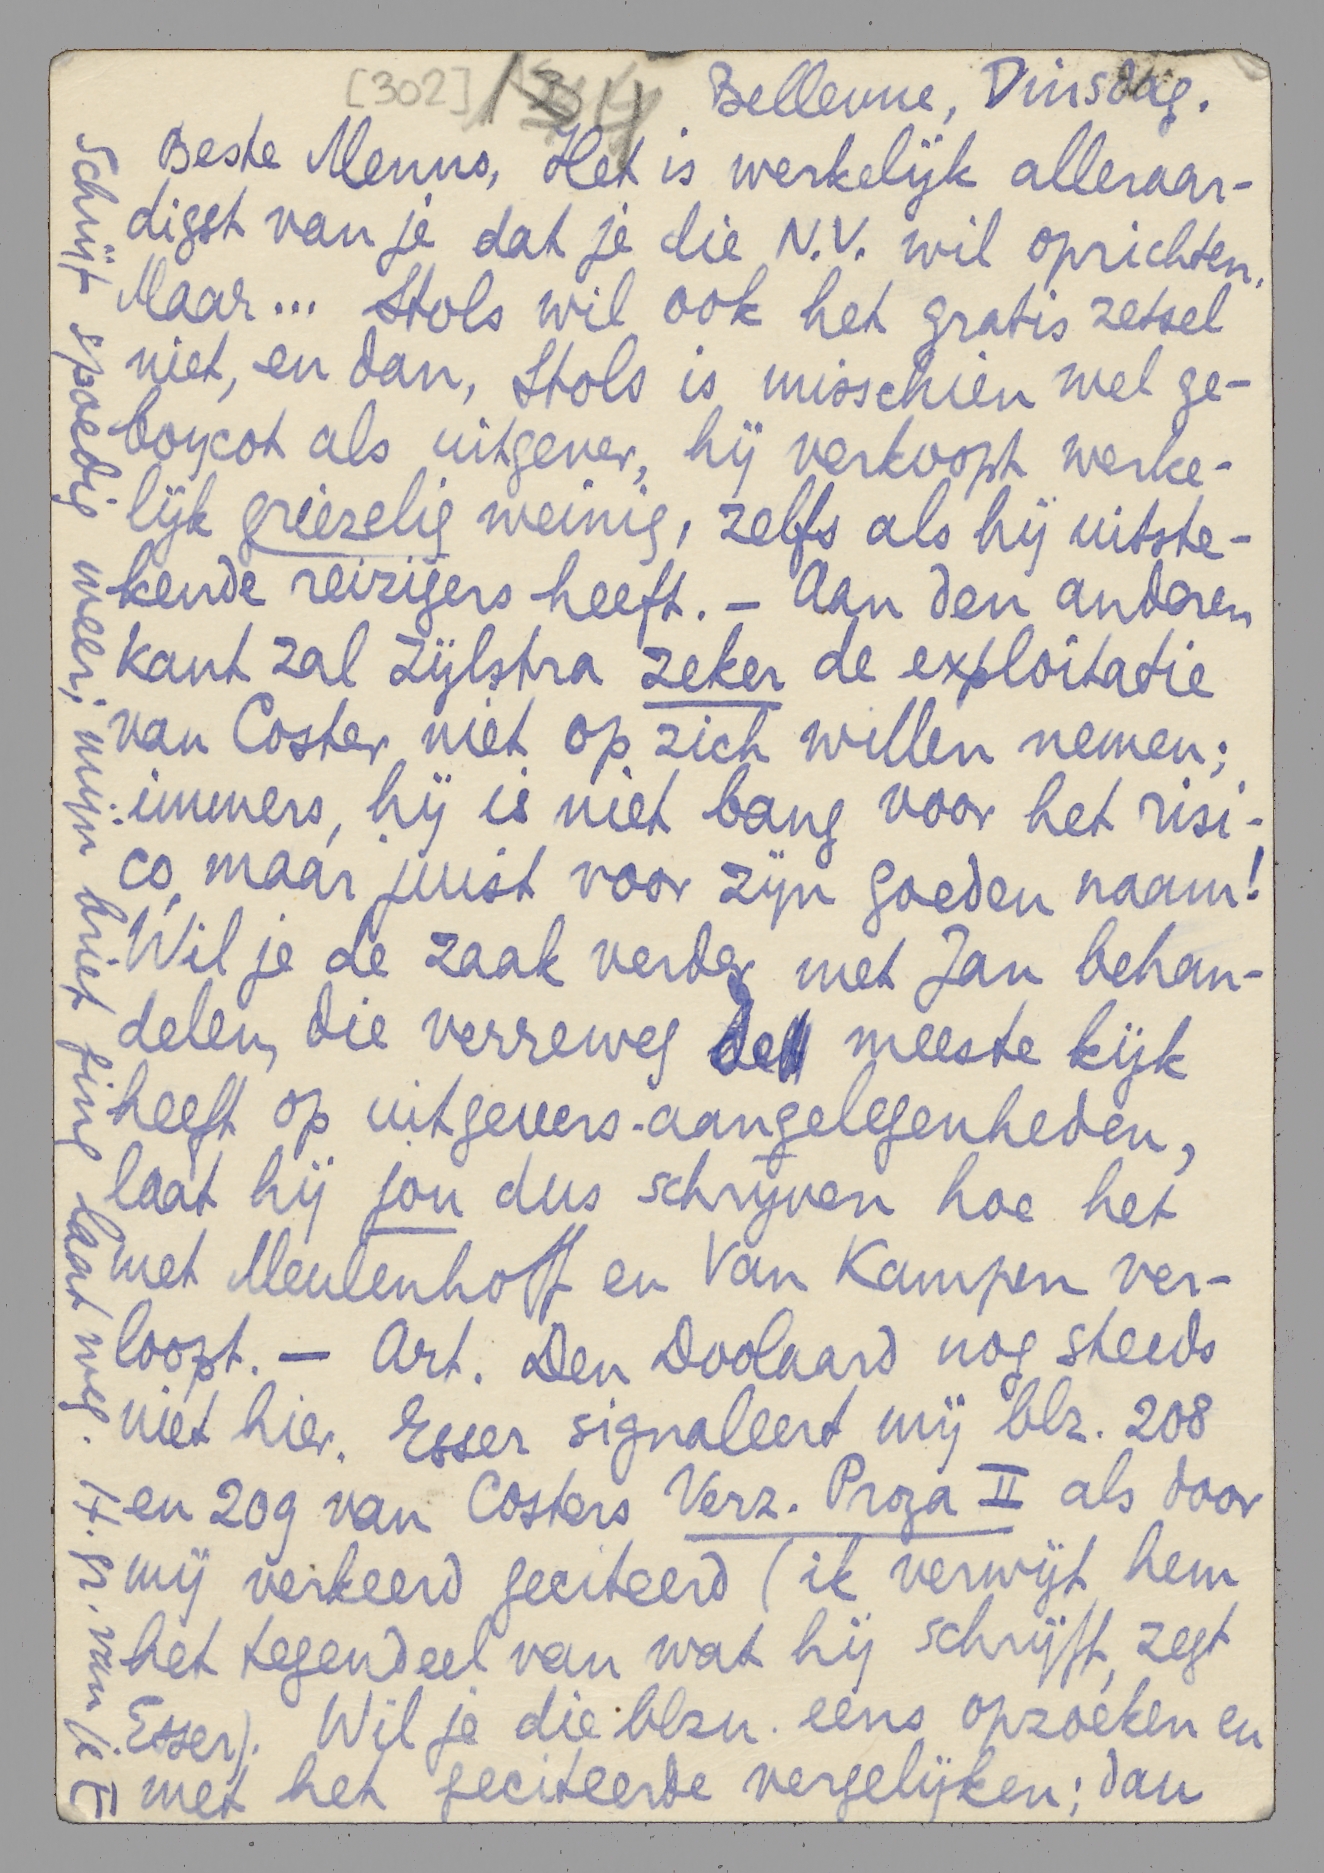 [302]
Bellevue, Dinsdag.
Beste Menno, Het is werkelijk alleraar-
digst van je dat je die N.V. wil oprichten.
Maar... Stols wil ook het gratis zetsel
niet, en dan, Stols is misschien wel ge-
boycot als uitgever, hij verkoopt werke-
lijk griezelig weinig, zelfs als hij uitste-
kende reizigers heeft. — Aan den anderen
kant zal Zijlstra zeker de exploitatie
van Coster niet op zich willen nemen;
immers, hij is niet bang voor het risi-
co, maar juist voor zijn goeden naam!
Wil je de zaak verder met Jan behan-
delen, die verreweg de meeste kijk
heeft op uitgevers-aangelegenheden,
laat hij jou dus schrijven hoe het
met Meulenhoff en Van Kampen ver-
loopt. — Art. Den Doolaard nog steeds
niet hier. Esser signaleert mij blz. 208
en 209 van Costers Verz. Proza II als door
mij verkeerd geciteerd (ik verwijt hem
het tegendeel van wat hij schrijft, zegt
Esser). Wil je die blzn. eens opzoeken en
met het geciteerde vergelijken; dan
Schrijf spoedig weer; mijn brief ging laat weg. H. gr. van je E